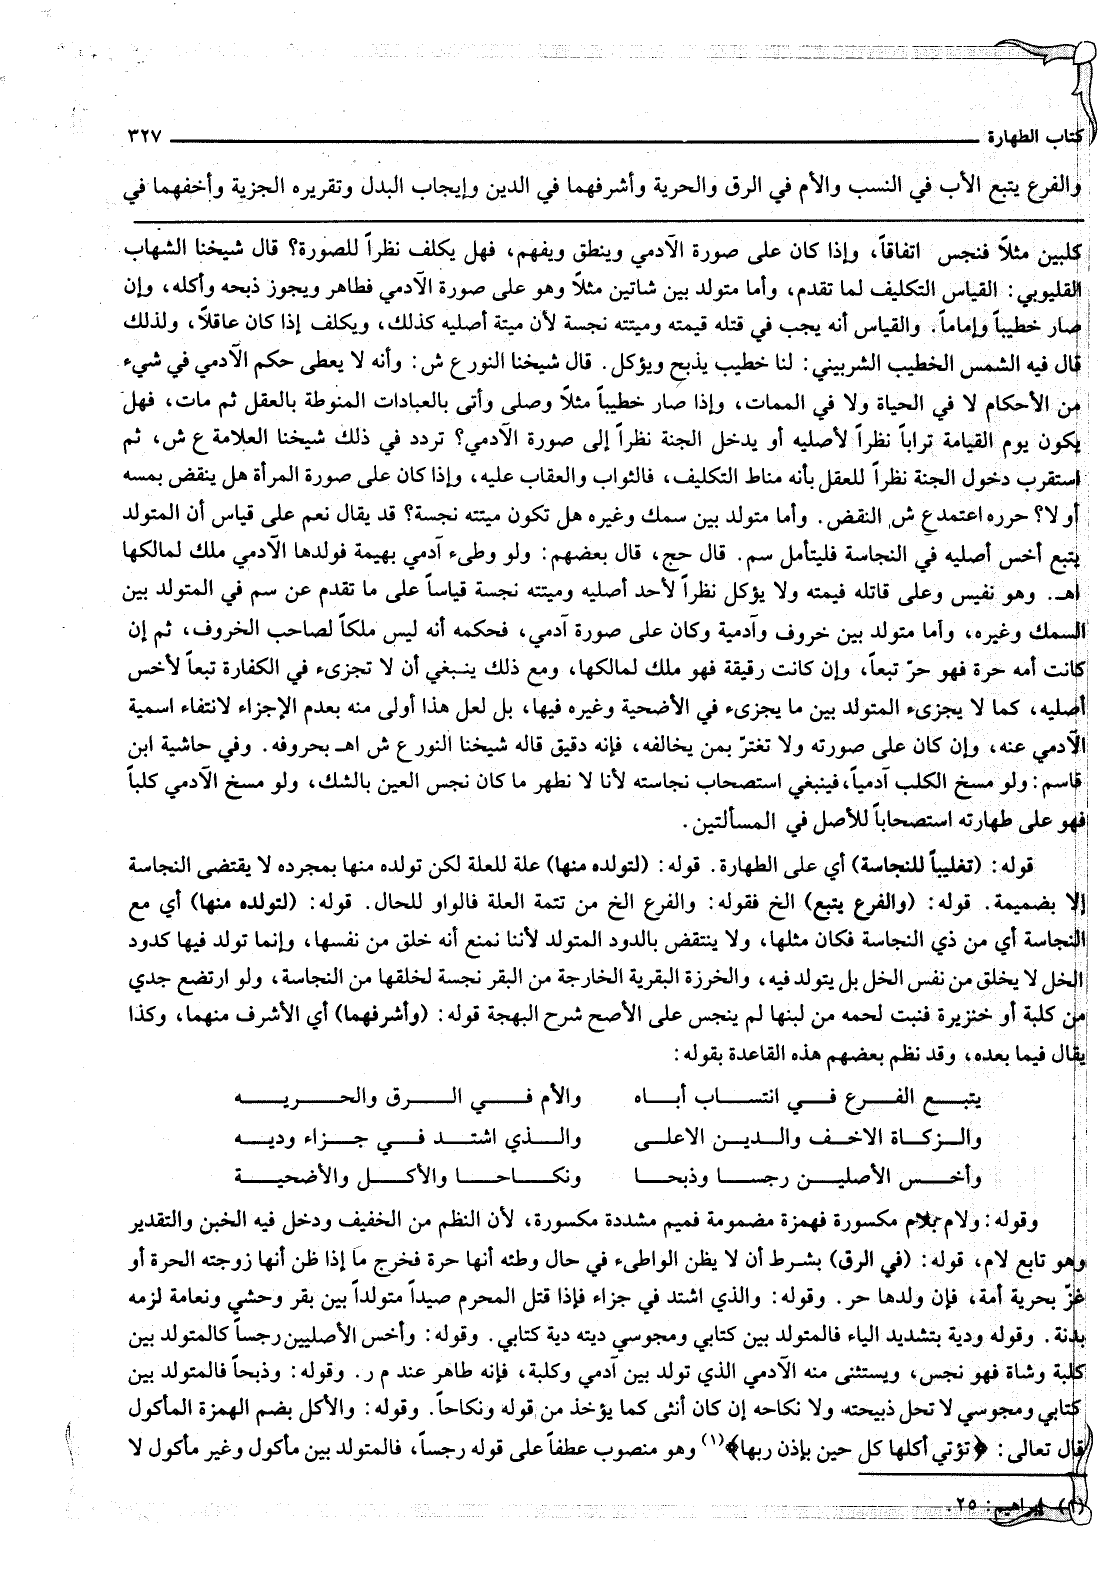 كتاب الطهارة ٣٢٧
والفرع يتبع الأب في النسب والأم في الرق والحرية وأشرفهما في الدين وإيجاب البدل وتقريره الجزية وأخفهما في
كلبين مثلاً فنجس اتفاقاً، وإذا كان على صورة الآدمي وينطق ويفهم، فهل يكلف نظراً للصورة؟ قال شيخنا الشهاب
القليوبي: القياس التكليف لما تقدم، وأما متولد بين شاتين مثلاً وهو على صورة الآدمي فطاهر ويجوز ذبحه وأكله، وإن
صار خطيباً وإماماً. والقياس أنه يجب في قتله قيمته وميتته نجسة لأن ميتة أصليه كذلك، ويكلف إذا كان عاقلاً، ولذلك
قال فيه الشمس الخطيب الشربيني: لنا خطيب يذبح ويؤكل. قال شيخنا النور ع ش: وأنه لا يعطى حكم الآدمي في شيء
من الأحكام لا في الحياة ولا في الممات، وإذا صار خطيباً مثلاً وصلى وأتى بالعبادات المنوطة بالعقل ثم مات، فهل
يكون يوم القيامة تراباً نظراً لأصليه أو يدخل الجنة نظراً إلى صورة الآدمي؟ تردد في ذلك شيخنا العلامة ع ش، ثم
استقرب دخول الجنة نظراً للعقل بأنه مناط التكليف، فالثواب والعقاب عليه، وإذا كان على صورة المرأة هل ينقض بمسه
أو لا؟ حرره اعتمد ع ش النقض. وأما متولد بين سمك وغيره هل تكون ميتته نجسة؟ قد يقال نعم على قياس أن المتولد
يتبع أخس أصليه في النجاسة فليتأمل سم. قال حج، قال بعضهم: ولو وطىء آدمي بهيمة فولدها الآدمي ملك لمالكها
اهـ. وهو نفيس وعلى قاتله قيمته ولا يؤكل نظراً لأحد أصليه وميتته نجسة قياساً على ما تقدم عن سم في المتولد بين
السمك وغيره، وأما متولد بين خروف وآدمية وكان على صورة آدمي، فحكمه أنه ليس ملكاً لصاحب الخروف، ثم إن
كانت أمه حرة فهو حرّ تبعاً، وإن كانت رقيقة فهو ملك لمالكها، ومع ذلك ينبغي أن لا تجزىء في الكفارة تبعاً لأخس
أصليه، كما لا يجزىء المتولد بين ما يجزىء في الأضحية وغيره فيها، بل لعل هذا أولى منه بعدم الإجزاء لانتفاء اسمية
الآدمي عنه، وإن كان على صورته ولا تغترّ بمن يخالفه، فإنه دقيق قاله شيخنا النور ع ش اهـ بحروفه. وفي حاشية ابن
قاسم: ولو مسخ الكلب آدمياً، فينبغي استصحاب نجاسته لأنا لا نطهر ما كان نجس العين بالشك، ولو مسخ الآدمي كلباً
فهو على طهارته استصحاباً للأصل في المسألتين.
قوله: (تغليباً للنجاسة) أي على الطهارة. قوله: (لتولده منها) علة للعلة لكن تولده منها بمجرده لا يقتضى النجاسة
إلا بضميمة. قوله: (والفرع يتبع) الخ فقوله: والفرع الخ من تتمة العلة فالواو للحال. قوله: (لتولده منها) أي مع
النجاسة أي من ذي النجاسة فكان مثلها، ولا ينتقض بالدود المتولد لأننا نمنع أنه خلق من نفسها، وإنما تولد فيها كدود
الخل لا يخلق من نفس الخل بل يتولد فيه، والخرزة البقرية الخارجة من البقر نجسة لخلقها من النجاسة، ولو ارتضع جدي
من كلبة أو خنزيرة فنبت لحمه من لبنها لم ينجس على الأصح شرح البهجة قوله: (وأشرفهما) أي الأشرف منهما، وكذا
يقال فيما بعده، وقد نظم بعضهم هذه القاعدة بقوله:
يتبع الفرع في انتساب أباه والأم في الرق والحريه
والزكاة الاخف والدين الاعلى والذي اشتد في جزاء وديه
وأخس الأصلين رجسا وذبحا ونكاحا والأكل والأضحية
وقوله: ولام بلام مكسورة فهمزة مضمومة فميم مشددة مكسورة، لأن النظم من الخفيف ودخل فيه الخبن والتقدير
وهو تابع لام، قوله: (في الرق) بشرط أن لا يظن الواطىء في حال وطئه أنها حرة فخرج ما إذا ظن أنها زوجته الحرة أو
غرّ بحرية أمة، فإن ولدها حر. وقوله: والذي اشتد في جزاء فإذا قتل المحرم صيداً متولداً بين بقر وحشي ونعامة لزمه
بدنة. وقوله ودية بتشديد الياء فالمتولد بين كتابي ومجوسي ديته دية كتابي. وقوله: وأخس الأصليين رجساً كالمتولد بين
كلبة وشاة فهو نجس، ويستثنى منه الآدمي الذي تولد بين آدمي وكلبة، فإنه طاهر عند م ر. وقوله: وذبحاً فالمتولد بين
كتابي ومجوسي لا تحل ذبيحته ولا نكاحه إن كان أنثى كما يؤخذ من قوله ونكاحاً. وقوله: والأكل بضم الهمزة المأكول
قال تعالى: ﴿تؤتي أكلها كل حين بإذن ربها﴾(١) وهو منصوب عطفاً على قوله رجساً، فالمتولد بين مأكول وغير مأكول لا
(١) إبراهيم: ٢٥.